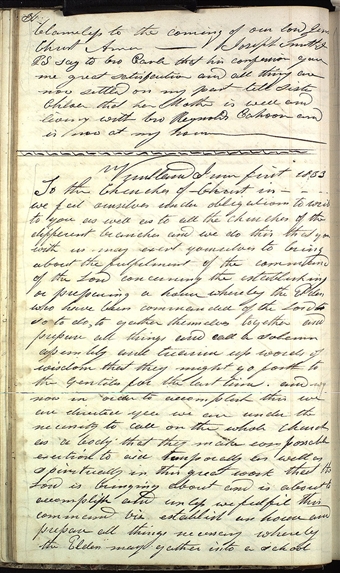 blameless to the coming of our Lord Jesus
Christ Amen Joseph Smith Jr
PS say to bro Carl that his confession gave
me great satisfaction and all things are
now settled on my part tell Sister
Chloe that her Mother is well and
living with bro Reynolds Cahoon and
is now at my house
Kirtland June first 1833
To the Churches of Christ in
we feel ourselves under obligations to write
to you as well as to all the Churches of the
different branches and we do this that you
with us may exert yourselves to bring
about the fulfilment of the command
of the Lord concerning the establishing
or prepareing a house whereby the Elders
who have been commanded of the Lord
so to do, to gather themselves together and
prepare all things and call a solemn
assembly and treasure up words of
wisdom that they might go forth to
the Gentiles for the last time. and
now in order to accomplish this we
are directed yea we are under the
necessity to call on the whole Church
as a body that they make every possable
exertion to aid temporally as well as
spiritually in this great work that the
Lord is bringing about and is about to
accomplish and unless we fulfil this
command viz establish an house and
prepare all things necessary whereby
the Elders may gather into a school